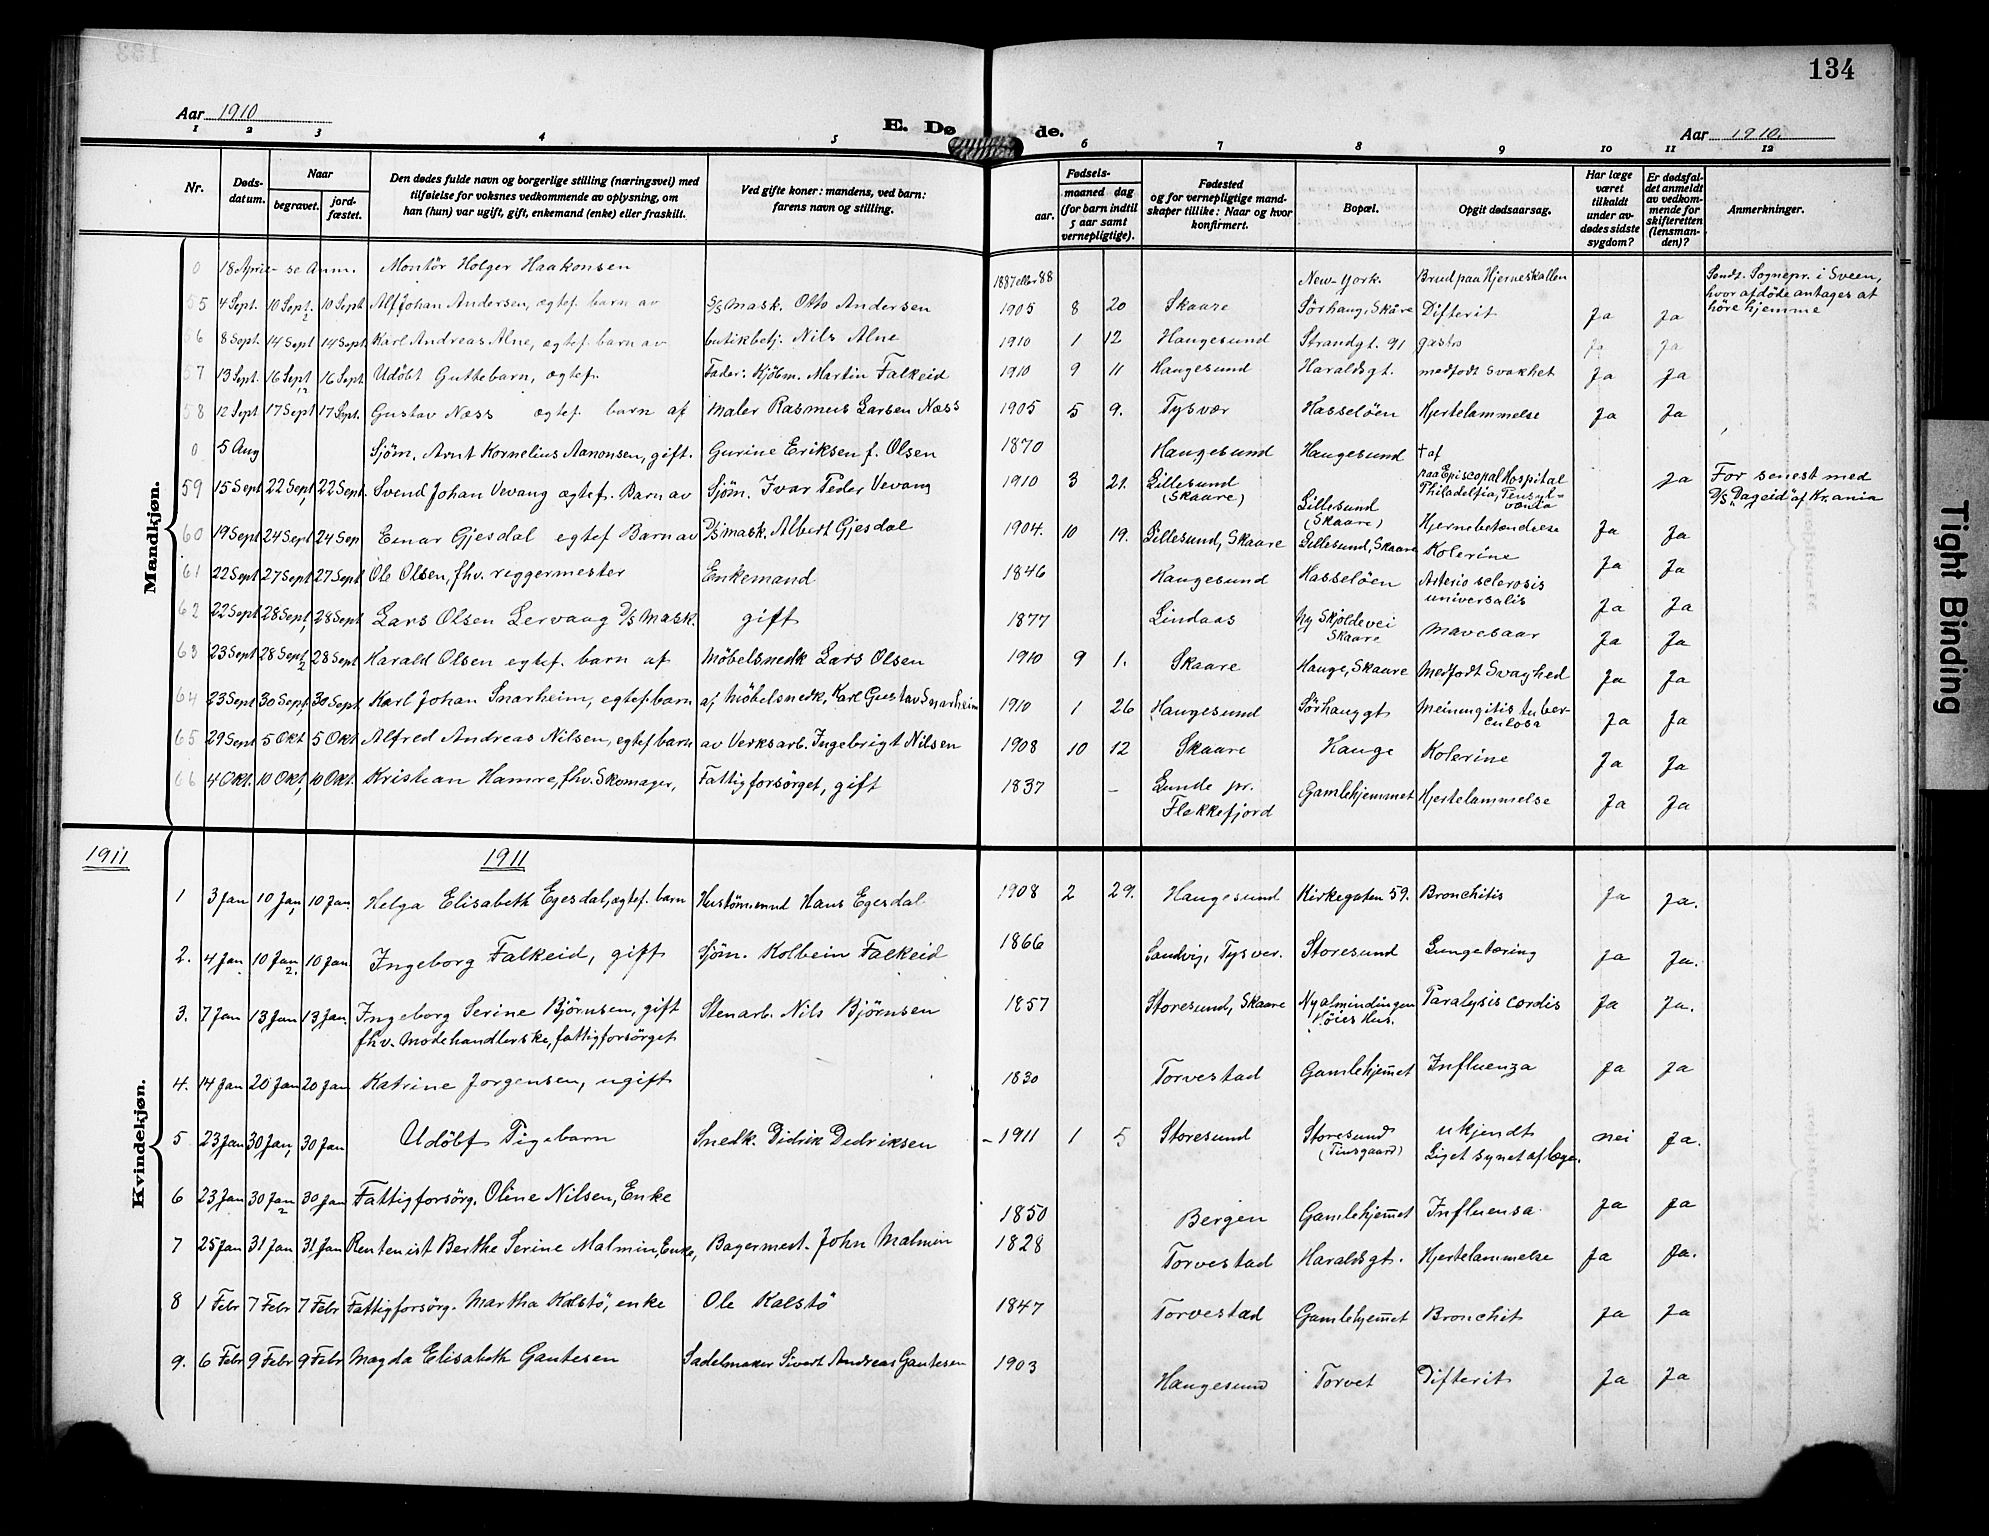 134
Aar 1910
E. Dø de.
Aar 1910.
1 2 3 4 5 6 7 8 9 10 11 12
Nr.
Døds-
datum.
Naar
begravet.
jord-
fæstet.
Den dødes fulde navn og borgerlige stilling (næringsvei) med
tilføielse for voksnes vedkommende av oplysning, om
han (hun) var ugift, gift, enkemand (enke) eller fraskilt.
Ved gifte koner: mandens, ved barn:
farens navn og stilling.
Fødsels-
aar.
maaned dag
(for barn indtil
5 aar samt
vernepligtige).
Fødested
og for vernepligtige mand-
skaper tillike: Naar og hvor
konfirmert.
Bopæl.
Opgit dødsaarsag.
Har læge
været
tilkaldt
under av-
dødes sidste
sygdom?
Er dødsfal-
det anmeldt
av vedkom-
mende for
skifteretten
(lensman-
den)?
Anmerkninger.
Mandkjøn.
0 18 April - se Anm. Montör Holger Haakonsen 1887 eller 88 New-York. Brud paa Hjerneskallen Sendt Sognepr. i Sveen, hvor afdøde antages at höre hjemme
55 4 Sept. 10 Sept. 10 Sept Alf Johan Andersen, ægtef. barn av S/S mask. Otto Andersen 1905 8 20 Skaare Sörhaug, Skåre Difterit Ja Ja
56 8 Sept. 14 Sept 14 Sept Karl Andreas Alne, ægtef. barn av butikbetj. Nils Alne 1910 1 12 Haugesund Strandgt. 91 gastro Ja Ja
57 13 Sept. 16 Sept 16 Sept Udöbt Guttebarn, ægtef. Fader: Kjöbm. Martin Falkeid 1910 9 11 Haugesund Haraldsgt. medfödt svakhet Ja Ja
58 12 Sept 17 Sept 17 Sept. Gustav Næss ægtef. barn af Maler Rasmus Larsen Næss 1905 5 9. Tysvær Hasselöen Hjertelammelse Ja Ja
0 5 Aug Sjöm. Arnt Kornelius Aanonsen, gift. Gurine Eriksen f. Olsen 1870 Haugesund Haugesund † af paa Episcopal Hospital Philadelfia, Pensyl- vania Ja For senest med D/S "Dageid" af Kr.ania
59 15 Sept 22 Sept 22 Sept. Svend Johan Vevang ægtef. Barn av Sjöm. Ivar Peder Vevang 1910 3 21. Lillesund (Skaare) Lillesund (Skaare) Hjernebetændelse Ja Ja
60 19 Sept 24 Sept 24 Sep Einar Gjesdal egtef Barn av D/S mask. Albert Gjesdal 1904. 10 19. Lillesund, Skaare Lillesund, Skaare Kolerine Ja Ja
61 22 Sept 27 Sept 27 Sept Ole Olsen, fhv. riggermester Enkemand 1846 Haugesund Hasselöen Arterio sclerosis universalis Ja Ja
62 22 Sept 28 Sept, 28 Sept Lars Olsen Lervaag D/S Mask. gift 1877 Lindaas Ny Skjoldevei Skaare Mavesaar Ja Ja
63 23 Sept 28 Sept 28 Sept Harald Olsen egtef. barn af Möbelsnedk Lars Olsen 1910 9 1. Skaare Hauge, Skaare Medfödt Svaghed Ja Ja
64 23 Sept 30 Sept, 30 Sept Karl Johan Snarheim, egtef. barn af Möbelsnedk, Karl Gustav Snarheim 1910 1 26 Haugesund Sörhauggt Meinengitis tuber- culosa Ja Ja
65 29 Sept 5 Okt 5 Okt Alfred Andreas Nilsen, egtef barn av Verksarb. Ingebrigt Nilsen 1908 10 12 Skaare Hauge Kolerine Ja Ja
66 4 Okt. 10 Okt, 10 Okt. Kristian Hamre, fhv. Skomager, Fattigforsörget, gift 1837 - Lunde pr. Flekkefjord Gamlehjemmet Hjertelammelse Ja Ja
1911 1911
Kvindekjøn.
1 3 Jan 10 Jan, 10 Jan. Helga Elisabeth Egesdal, ægtef. barn Hustömmmd Hans Egesdal 1908 2 29. Haugesund Kirkegaten 59. Bronchitis Ja Ja.
2. 4 Jan 10 Jan 2. 10 Jan Ingeborg Falkeid, gift Sjöm. Kolbein Falkeid 1866 Sandvig, Tysver. Storesund Lungetæring Ja Ja.
3. 7 Jan 13 Jan 13 Jan. Ingeborg Serine Bjørnsen, gift Stenarb. Nils Bjørnsen 1857 Storesund, Skaare Ny almindingen Höies Hus. Paralysis cordis Ja Ja.
fhv. Motehandlerske, fattigforsörget
4. 14 Jan 20 Jan 20 Jan Katrine Jorgensen, ugift 1830 Torvestad Gamlehjem̄et Influenza Ja Ja
5 23 Jan 30 Jan, 30 Jan Udöbt Pigebarn Snedk. Didrik Didriksen - 1911 1 5 Storesund Storesund (Tinsgaard) ukjendt Liget synet af læge. nei Ja.
6 23 Jan 30 Jan 2 30 Jan Fattigforsörg. Oline Nilsen, Enke 1850 Bergen Gamlehjem̄et Influensa Ja Ja
7 25 Jan 31 Jan 31 Jan Rentenist Berthe Serine Malmin, Enke, Bagermest. John Malmin 1828 Torvestad Haraldsgt. Hjertelammelse Ja Ja.
8 1 Febr 7 Febr 7 Febr Fattigforsörg. Martha Kalstö, enke Ole Kalstö 1847 Torvestad Gamlehjem̄et Bronchit Ja Ja
9. 6 Febr 9 Febr 9 Febr Magda Elisabeth Gautesen Sadelmaker Sivert Andreas Gautesen 1903 Haugesund Torvet Difterit Ja Ja
Tight Binding